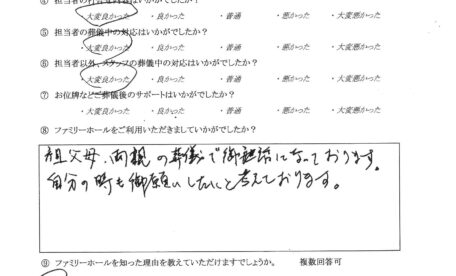 ④ 担当者の打合せ内容はいかがでしたか？
・大変良かった ・良かった ・普通 ・悪かった ・大変悪かった
⑤ 担当者の葬儀中の対応はいかがでしたか？
・大変良かった ・良かった ・普通 ・悪かった ・大変悪かった
⑥ 担当者以外、スタッフの葬儀中の対応はいかがでしたか？
・大変良かった ・良かった ・普通 ・悪かった ・大変悪かった
⑦ お位牌などご葬儀後のサポートはいかがでしたか？
・大変良かった ・良かった ・普通 ・悪かった ・大変悪かった
⑧ ファミリーホールをご利用いただきましていかがでしたか？
祖父母、両親の葬儀で御世話になっております。
自分の時も御願いしたいと考えております。
⑨ ファミリーホールを知った理由を教えていただけますでしょうか。 複数回答可